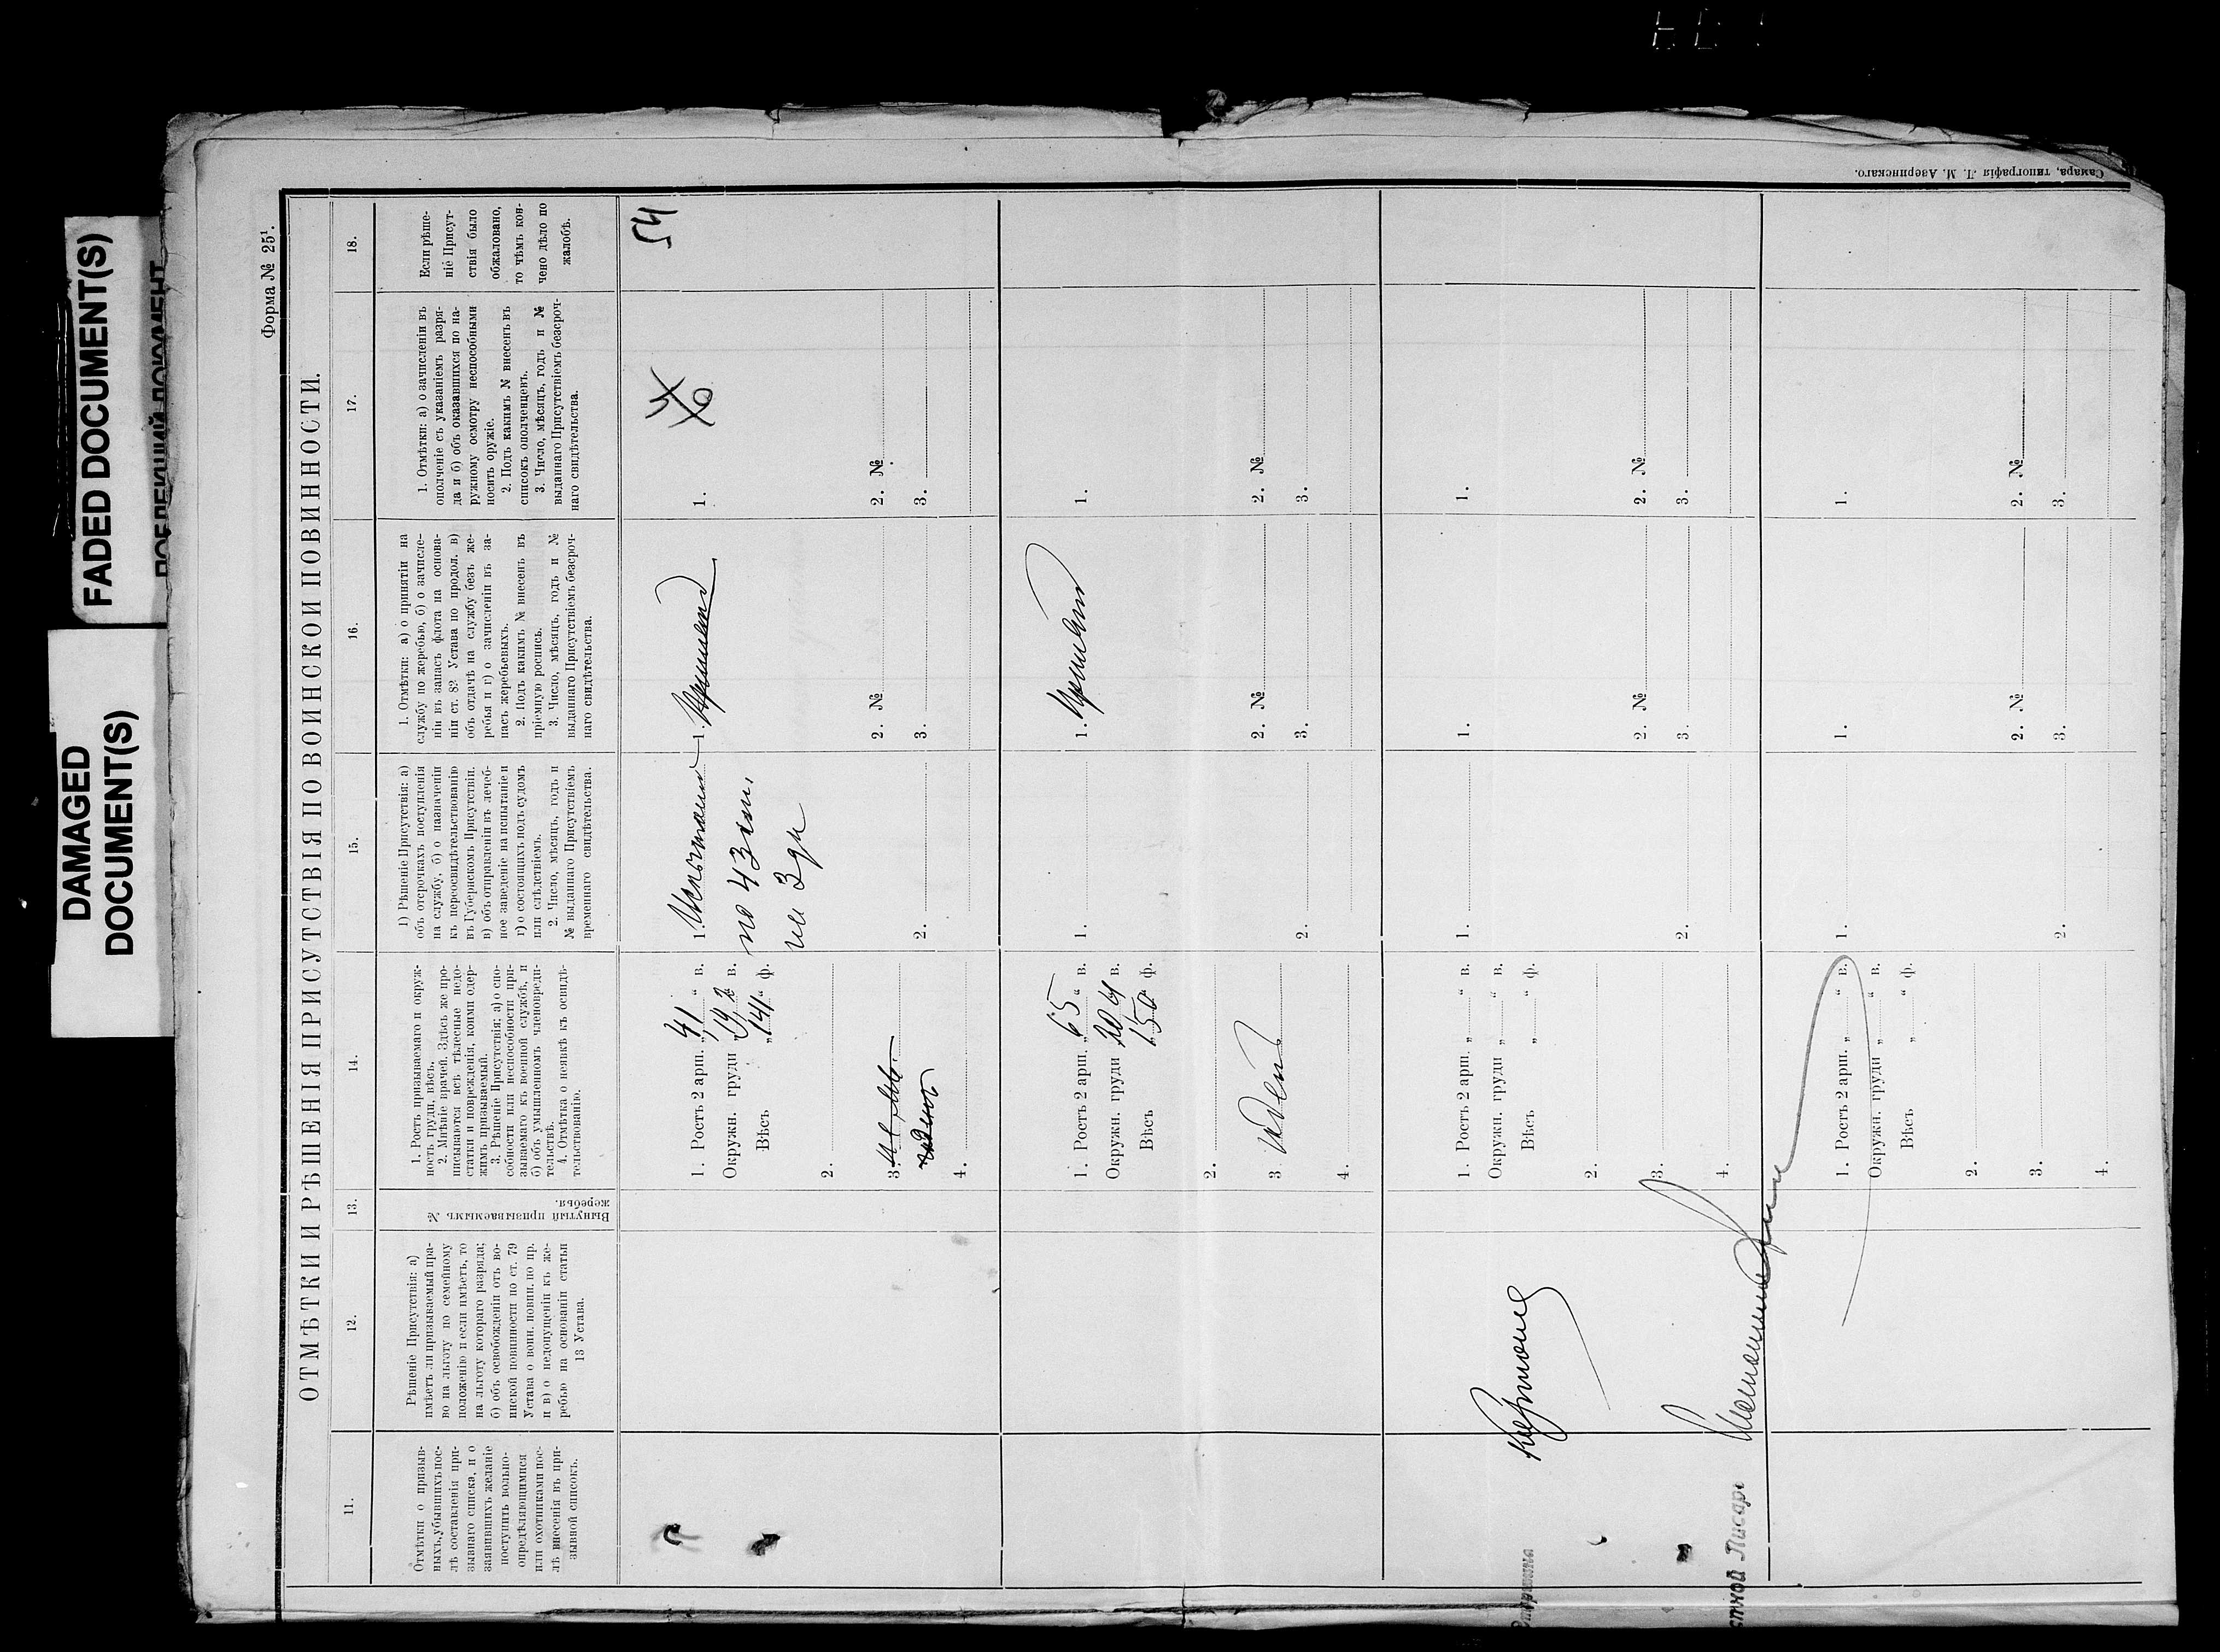 FADED DOCUMENT(S)
DAMAGED
DOCUMENT(S)
Форма № 25¹.
ОТМѢТКИ И РѢШЕНІЯ ПРИСУТСТВІЯ ПО ВОИНСКОЙ ПОВИННОСТИ.
11.
12.
13.
14.
15.
16.
17.
18.
Отмѣтки о призыв-
ныхъ, убывшихъ пос-
лѣ составленія при-
зывнаго списка, и о
заявившихъ желаніе
поступить вольно-
опредѣляющимися
или охотниками пос-
лѣ внесенія въ при-
зывной списокъ.
Рѣшеніе Присутствія: а)
имѣетъ ли призываемый пра-
во на льготу по семейному
положенію и если имѣетъ, то
на льготу котораго разряда;
б) объ освобожденіи отъ во-
инской повинности по ст. 79
Устава о воин. повин. по пр.
и в) о недопущеніи къ же-
ребью на основаніи статьи
13 Устава.
Вынутый призываемымъ №
жеребья.
1. Ростъ призываемаго и окруж-
ность груди, вѣсъ.
2. Мнѣніе врачей. Здѣсь же про-
писываются всѣ тѣлесные недо-
статки и поврежденія, коими одер-
жимъ призываемый.
3. Рѣшеніе Присутствія: а) о спо-
собности или неспособности при-
зываемаго къ военной службѣ, и
б) объ умышленномъ членовреди-
тельствѣ.
4. Отмѣтка о неявкѣ къ освидѣ-
тельствованію.
1) Рѣшеніе Присутствія: а)
объ отсрочкахъ поступленія
на службу, б) о назначеніи
къ переосвидѣтельствованію
въ Губернскомъ Присутствіи,
в) объ отправленіи въ лечеб-
ное заведеніе на испытаніе и
г) о состоящихъ подъ судомъ
или слѣдствіемъ.
2. Число, мѣсяцъ, годъ и
№ выданнаго Присутствіемъ
временнаго свидѣтельства.
1. Отмѣтки: а) о принятіи на
службу по жеребью, б) о зачисле-
ніи въ запасъ флота на основа-
ніи ст. 82 Устава по продол. в)
объ отдачѣ на службу безъ же-
ребья и г) о зачисленіи въ за-
пасъ жеребьевыхъ.
2. Подъ какимъ № внесенъ въ
пріемную роспись.
3. Число, мѣсяцъ, годъ и №
выданнаго Присутствіемъ безсроч-
наго свидѣтельства.
1. Отмѣтки: а) о зачисленіи въ
ополченіе съ указаніемъ разря-
да и б) объ оказавшихся по на-
ружному осмотру неспособными
носить оружіе.
2. Подъ какимъ № внесенъ въ
списокъ ополченцевъ.
3. Число, мѣсяцъ, годъ и №
выданнаго Присутствіемъ безсроч-
наго свидѣтельства.
Если рѣше-
ніе Присут-
ствія было
обжаловано,
то чѣмъ кон-
чено дѣло по
жалобѣ.
1. Ростъ 2 арш. „ “ в.
Окружн. груди в.
Вѣсъ „ 141 “ ф.
2.
3.
4.
1.
по 43 ст.
2.
1. Принятъ
2. №
3.
1.
2. №
3.
54
1. Ростъ 2 арш. „ 65 “ в.
Окружн. груди в.
Вѣсъ 150 ф.
2.
3. Годенъ
4.
1.
2.
1. Принятъ
2. №
3.
1.
2. №
3.
1. Ростъ 2 арш. „ “ в.
Окружн. груди „ “ в.
Вѣсъ „ “ ф.
2.
3.
4.
1.
2.
1.
2. №
3.
1.
2. №
3.
Старшина
Писарь
1. Ростъ 2 арш. „ “ в.
Окружн. груди „ “ в.
Вѣсъ „ “ ф.
2.
3.
4.
1.
2.
1.
2. №
3.
1.
2. №
3.
Самара, типографія Л. М. Азеринскаго.